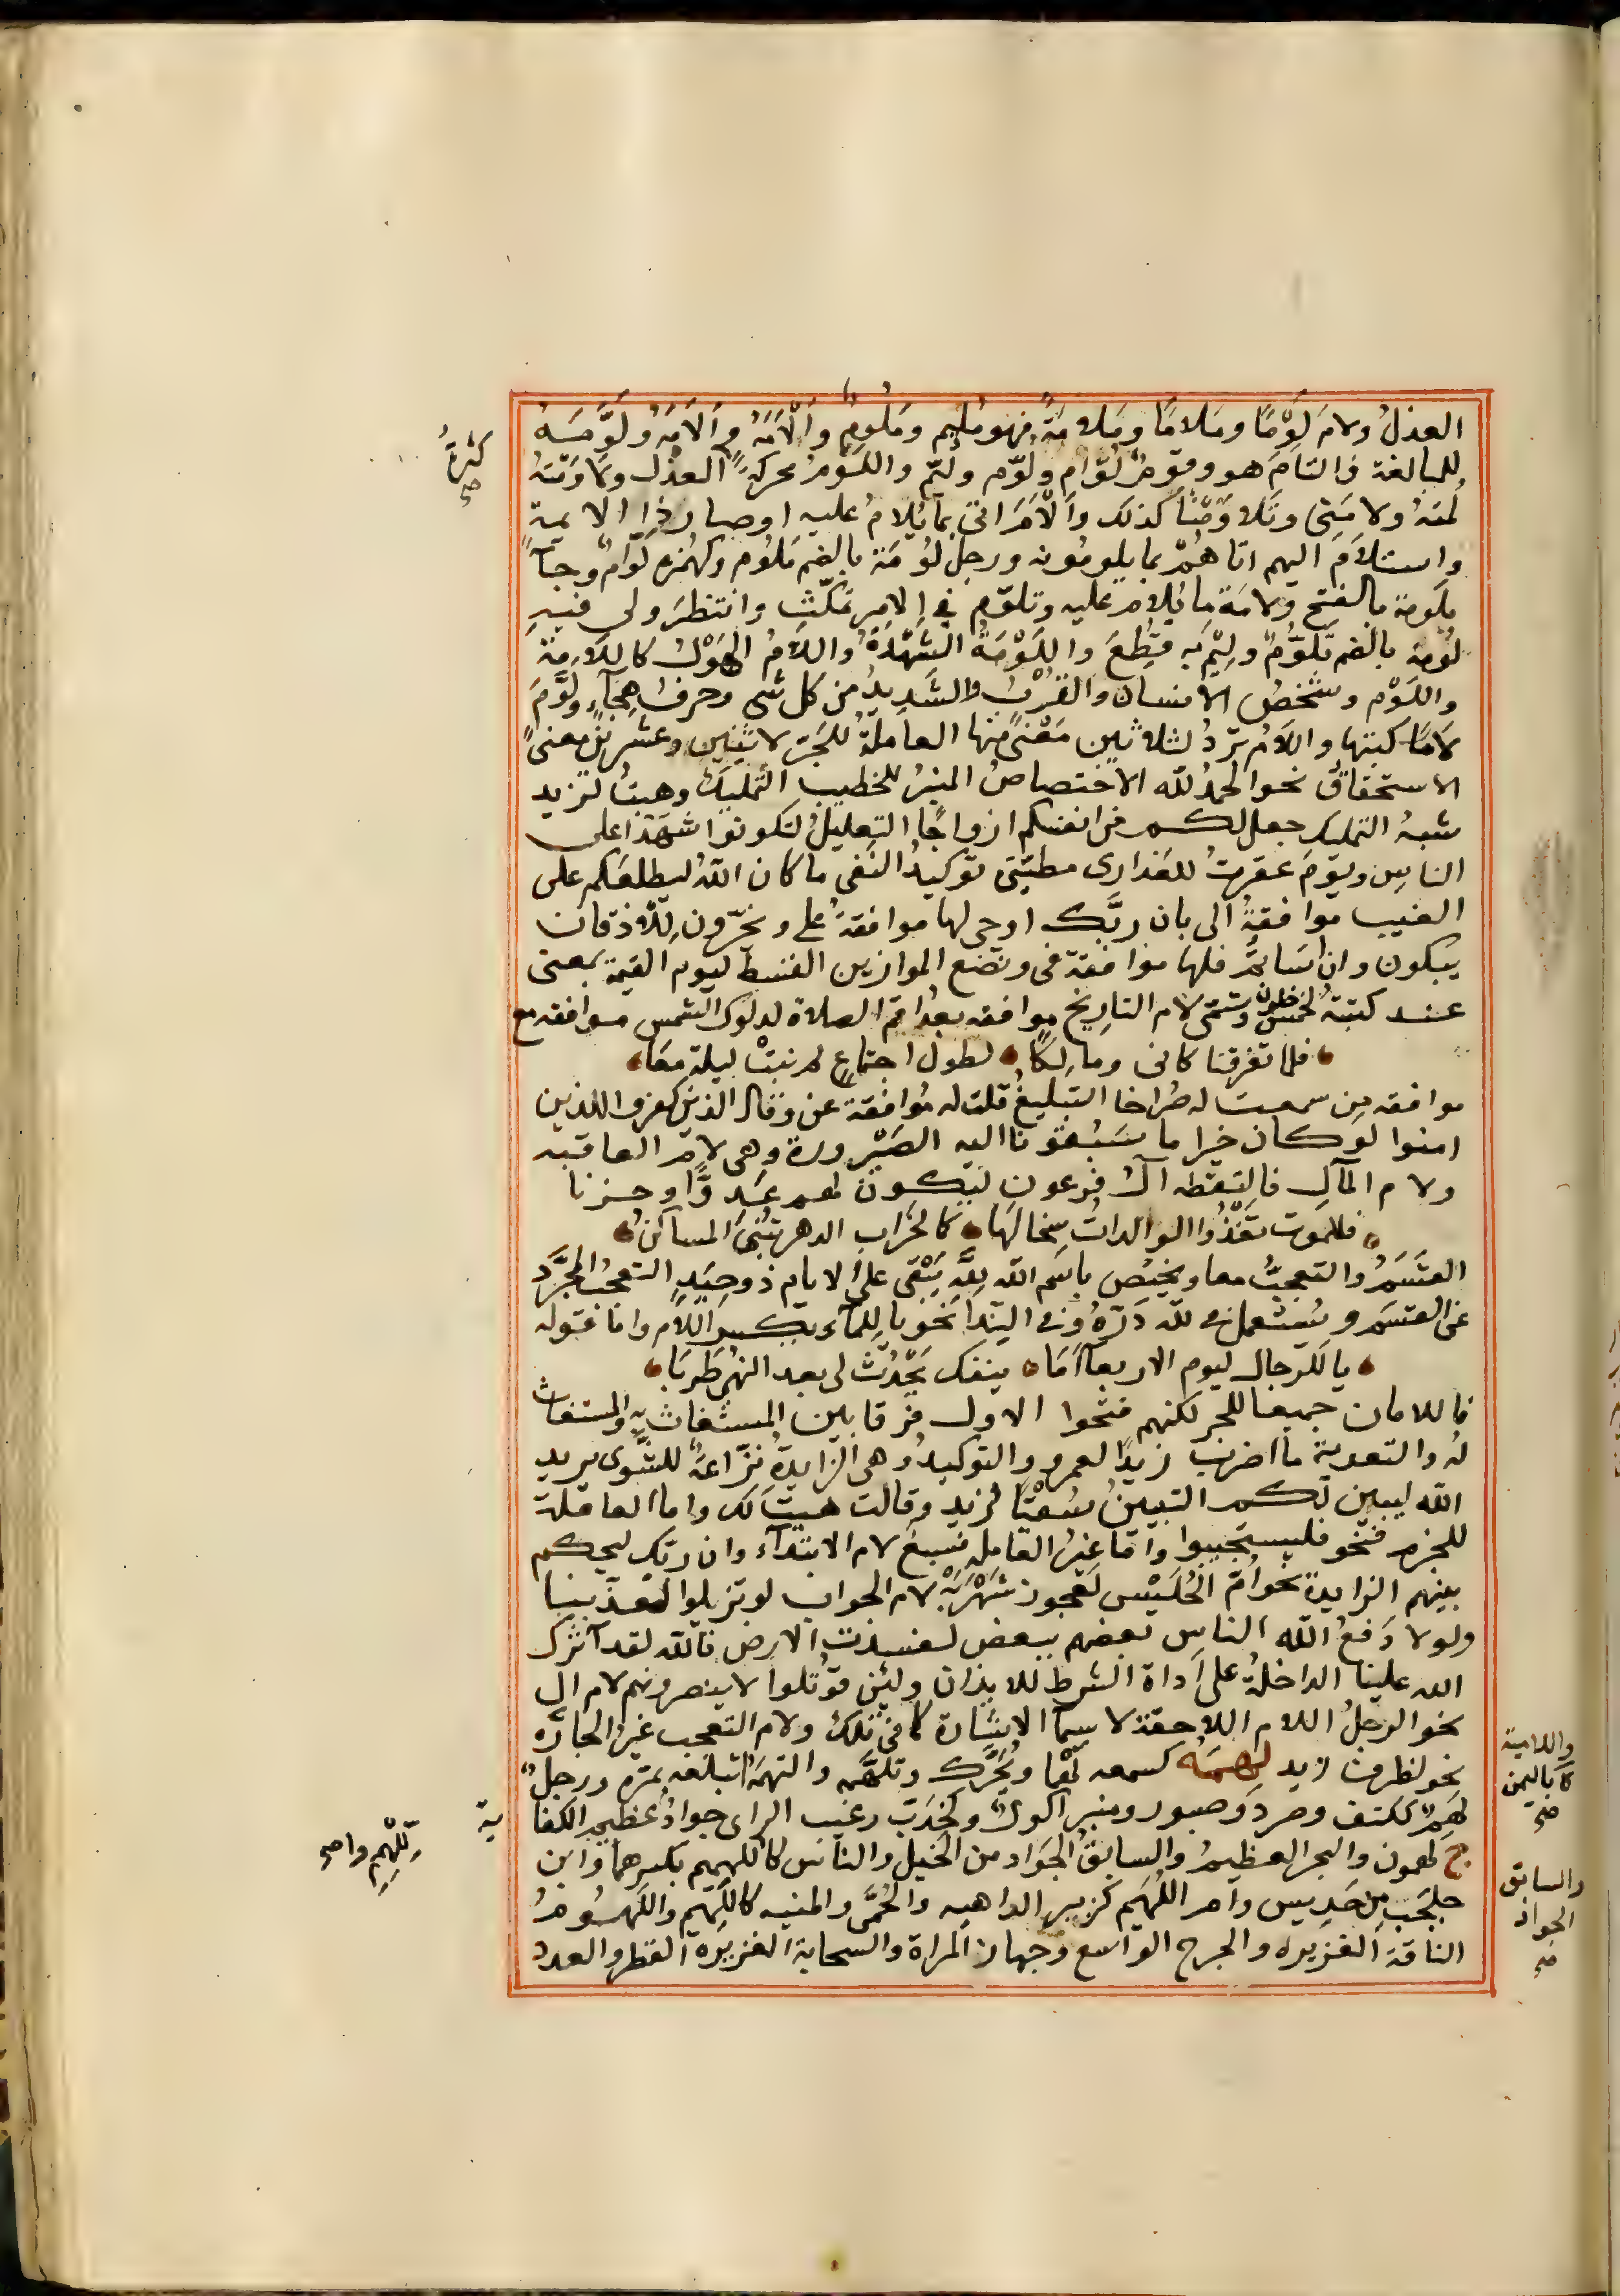 العذلُ ولامَ لَوْمًا ومَلامًا ومَلامَةً فهو مُلِيم ومَلُومٌ وأَلامَهُ وأَلَامَهُ ولَوَّمَهُ
للمبالغة فالتامَ هو وقومٌ لُوّام ولُوّم ولُيّم واللَّوَمُ محركةً العذل ولاوَمْتهُ
لُمتهُ ولامَنِي وتَلاوَمْنا كذلك وأَلَامَ اتى بما يُلامُ عليه او صار ذا لايمة
واستلامَ اليهم اتاهُمْ بما يلومُونه ورجل لُومَة بالضم مَلُوم وكهُمَزة لوّامٌ وجآء
بلَومة بالفتح ولامَة ما يُلام عليه وتلوّم في الامر تمكّث وانتظرَ ولى فيه
لُومة بالضم تلوُّمٌ ولِيْمَ به قُطِعَ واللَّوْمَةُ الشَهْدةُ واللامُ الهَوْل كاللَامة
واللَوْم وشخصُ الانسان والقُرْبُ والشَديدُ من كل شى وحرفُ هِجآء ولَوَّمَ
لامًا كتبها واللامُ تَرِدُ لثلاثين مَعْنًى منها العاملةُ للجَرّ لاثنين وعشرين معنىً
الاستحقاقُ نحو الحمدُ لله الاختصاصُ المنبرُ للخطيب التمليكُ وهبتُ لزيد
شبهُ التمليك جعل لكم من انفسكم ازواجًا التعليلُ لتكونوا شهَدَا على
الناسِ ويومَ عقرتُ للعَذارى مطيّتى توكيدُ النَفى ما كان الله ليطلعَكم على
الغيب موافقةُ الى بان ربَّك اوحى لها موافقةُ على ويخرّون للاذقان
يبكون وان اسَاتُمْ فلها موافقة فى ونضع الموازين القسطَ ليوم القيمة بمعنى
عند كتبتهُ لخمسٍ خلونَ وتسمّى لام التاريخ موافقه بعدُ اقم الصلاة لدلوك الشمس موافقه مع
فلما تفرقنا كانى ومالكًا لطول اجتماعٍ لم نبتْ ليلة معَا
موافقه مِن سمعت له صُراخا التبليغُ قلت له مُوافقة عن وقال الذين كفروا للذين
امنوا لو كان خيرا ما سَبَقُوْنا اليه الصَيْرورة وهى لام العاقبه
ولام المآل فالتقطه آلُ فرعون ليكونَ لهم عَدوًّا وحزنا
فللموت تَغْذُوا الوالداتُ سِخالَها كما لخَراب الدهر تُبْنى المساكنُ
القَسَمُ والتعجبُ معا ويختص باسم الله لِلّه يَبْقى على الايام ذو حِيَدٍ التعجبُ المجرَّد
عن القسَم ويُستعمل فى لله دَرّهُ وفى النِدا نحو يا لِلمآء بكسر اللام واما قوله
يا لَلرجال ليوم الاربعآ اَمَا ينفك يحْدُث لى بعد النهى طَرَبَا
فاللامان جميعا للجر لكنهم فتحوا الاول فرقا بين المستغاث بِهِ والمستغاث
لهُ والتعدية ما اضرب زيدًا لعمرو والتوكيدُ وهى الزايدةُ نزّاعةً للشَّوى يريد
الله ليبين لكم التبيينُ سُقيًا لزيد وقالت هيت لك واما العاملة
للجزم فنحو فليستجيبوا واما غيرُ العامله فسبعٌ لام الابتدآء وان ربّك ليحكم
بينهم الزايدة نحو امّ الحُليْس لعجوز شَهْرَبَهْ لام الجواب لو تزيلوا لعذبنا
ولولا دَفعُ الله الناس بعضهم ببعض لفسدت الارض تالله لقد آثرك
الله علينا الداخلةُ على اَداة الشرط للايذان ولئن قوتلوا لا ينصرونهم لام ال
نحو الرجلُ اللام اللاحقة لاسمآ الاشارة كما فى تلك ولام التعجب غيرُ الجارّه
نحو لظرف زيد لَهِمَهُ كسمعه لَهْمًا ويُحَرَّك وتلهّمه والتهمَهُ ابتلعه بمَرّه ورجلٌ
لَهِمٌ ككتف وصرد وصبور ومنبر اكولٌ وكخِدَبّ رغيب الراى جوادٌ عظيم الكفا
ية
ج لهمون والبحر العظيمُ والسابقُ الجَواد من الخيل والناس كاللهميم بكسرهما وابن
جلجب مِن جَدِيس وام اللُهَيم كزبير الداهيه والحُمّى والمنيه كاللهيم واللُهمُومُ
الناقة الغزيره والجرح الواسع وجهاز المراة والسحابة الغزيرَه القطر والعدد
كثرةُ
صح
واللامية
ة باليمن
صح
والسابق
الجواد
صح